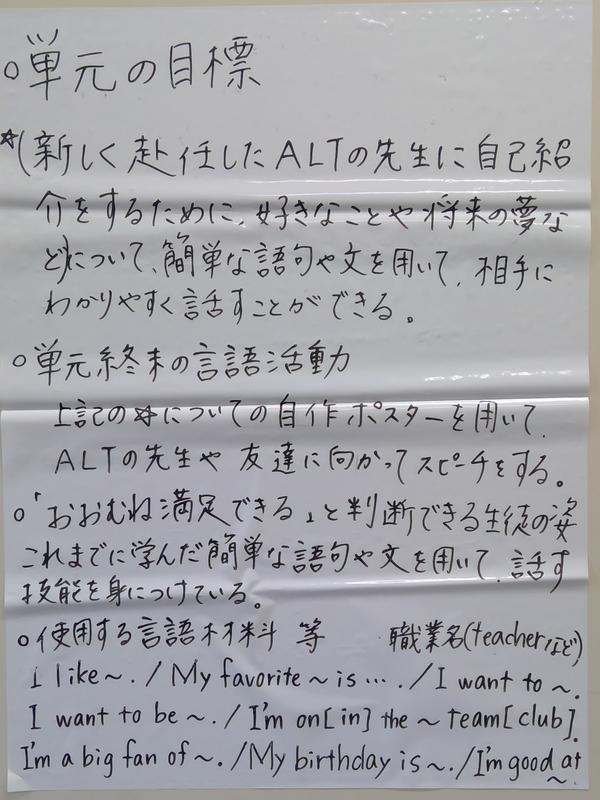 ○単元の目標
☆(新しく赴任したALTの先生に自己紹
介をするために、好きなことや将来の夢な
ど)について、簡単な語句や文を用いて、相手に
わかりやすく話すことができる。
○単元終末の言語活動
上記の☆についての自作ポスターを用いて、
ALTの先生や友達に向かってスピーチをする。
○「おおむね満足できる」と判断できる生徒の姿
これまでに学んだ簡単な語句や文を用いて、話す
技能を身につけている。
○使用する言語材料 等 職業名(teacherなど)
I like~. / My favorite ~ is … . / I want to ~.
I want to be ~. / I'm on[in] the ~ team[club].
I'm a big fan of ~. / My birthday is ~. / I'm good at
~.